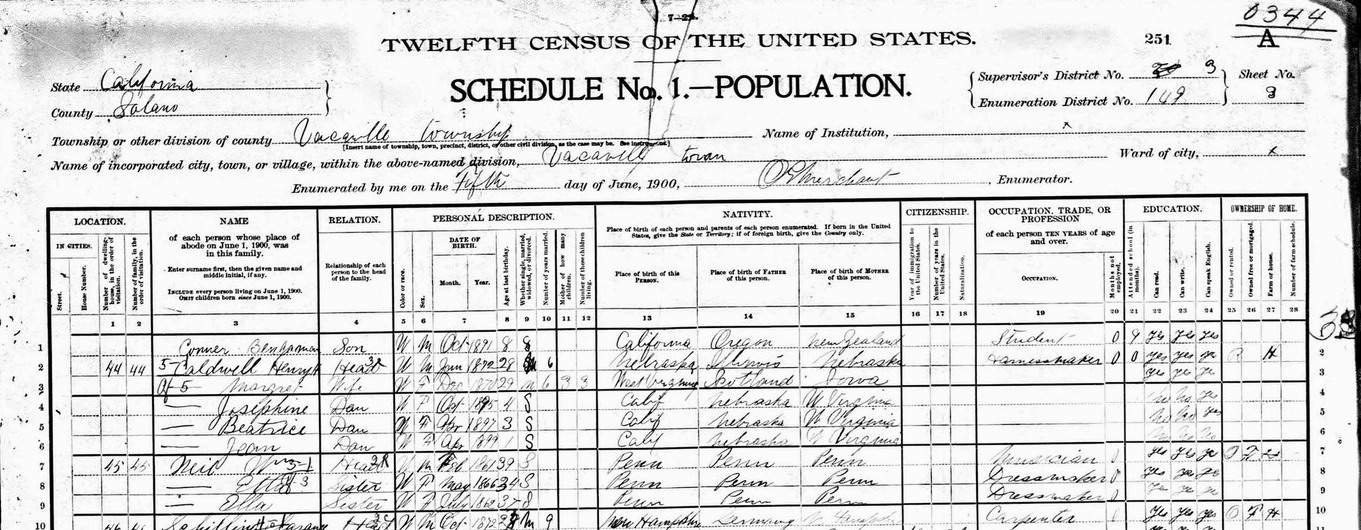 7-22
0344
TWELFTH CENSUS OF THE UNITED STATES.
251
A
State California
County Solano
SCHEDULE No. 1.—POPULATION.
Supervisor's District No. 3
Enumeration District No. 149
Sheet No.
Township or other division of county Vacaville township
Name of Institution, x
[Insert name of township, town, precinct, district, or other civil division, as the case may be. See instructions.]
Name of incorporated city, town, or village, within the above-named division, Vacaville town
Ward of city, x
Enumerated by me on the Fifth day of June, 1900, Merchant, Enumerator.
LOCATION. NAME RELATION. PERSONAL DESCRIPTION. NATIVITY. CITIZENSHIP. OCCUPATION, TRADE, OR PROFESSION EDUCATION. OWNERSHIP OF HOME.
IN CITIES. Street. House Number. Number of dwelling-house, in the order of visitation. Number of family, in the order of visitation.
of each person whose place of abode on June 1, 1900, was in this family.
Enter surname first, then the given name and middle initial, if any.
INCLUDE every person living on June 1, 1900.
OMIT children born since June 1, 1900.
Relationship of each person to the head of the family.
Color or race. Sex. DATE OF BIRTH. Month. Year. Age at last birthday. Whether single, married, widowed, or divorced. Number of years married. Mother of how many children. Number of these children living.
Place of birth of each person and parents of each person enumerated. If born in the United States, give the State or Territory; if of foreign birth, give the Country only.
Place of birth of this PERSON. Place of birth of FATHER of this person. Place of birth of MOTHER of this person.
Year of immigration to the United States. Number of years in the United States. Naturalization.
of each person TEN YEARS of age and over.
OCCUPATION. Months not employed.
Attended school (in months). Can read. Can write. Can speak English.
Owned or rented. Owned free or mortgaged. Farm or house. Number of farm schedule.
1 2 3 4 5 6 7 8 9 10 11 12 13 14 15 16 17 18 19 20 21 22 23 24 25 26 27 28
1 Conner Benjaman Son W M Oct 1891 8 S California Oregon New Zealand Student 0 9 Yes Yes Yes
2 44 44 Caldwell Henry Head W M Jun 28 M 6 Nebraska Illinois Nebraska Harnessmaker 0 0 yes yes yes H 2
3 Margret Wife W F Dec 1870 29 M 6 3 3 West Virginia Scotland Iowa Yes Yes Yes 3
4 — Josephine Dau W F Oct 1895 4 S Calif Nebraska W Virginia 4
5 — Beatrice Dau W F 1897 3 S Calif Nebraska W Virginia 5
6 — Jean Dau W F Apr 1899 1 S Calif Nebraska W Virginia 6
7 45 45 Head W M Feb 1861 39 S Penn Penn Penn 0 Yes Yes Yes O F H 7
8 — Etta Sister W F May 1866 34 S Penn Penn Penn Dressmaker 0 Yes Yes Yes 8
9 — Ella Sister W F July S Penn Penn Penn Dressmaker 0 Yes Yes Yes 9
10 Head W M Oct M 9 New Hampshire Germany Carpenter 0 Yes Yes Yes O F H 10